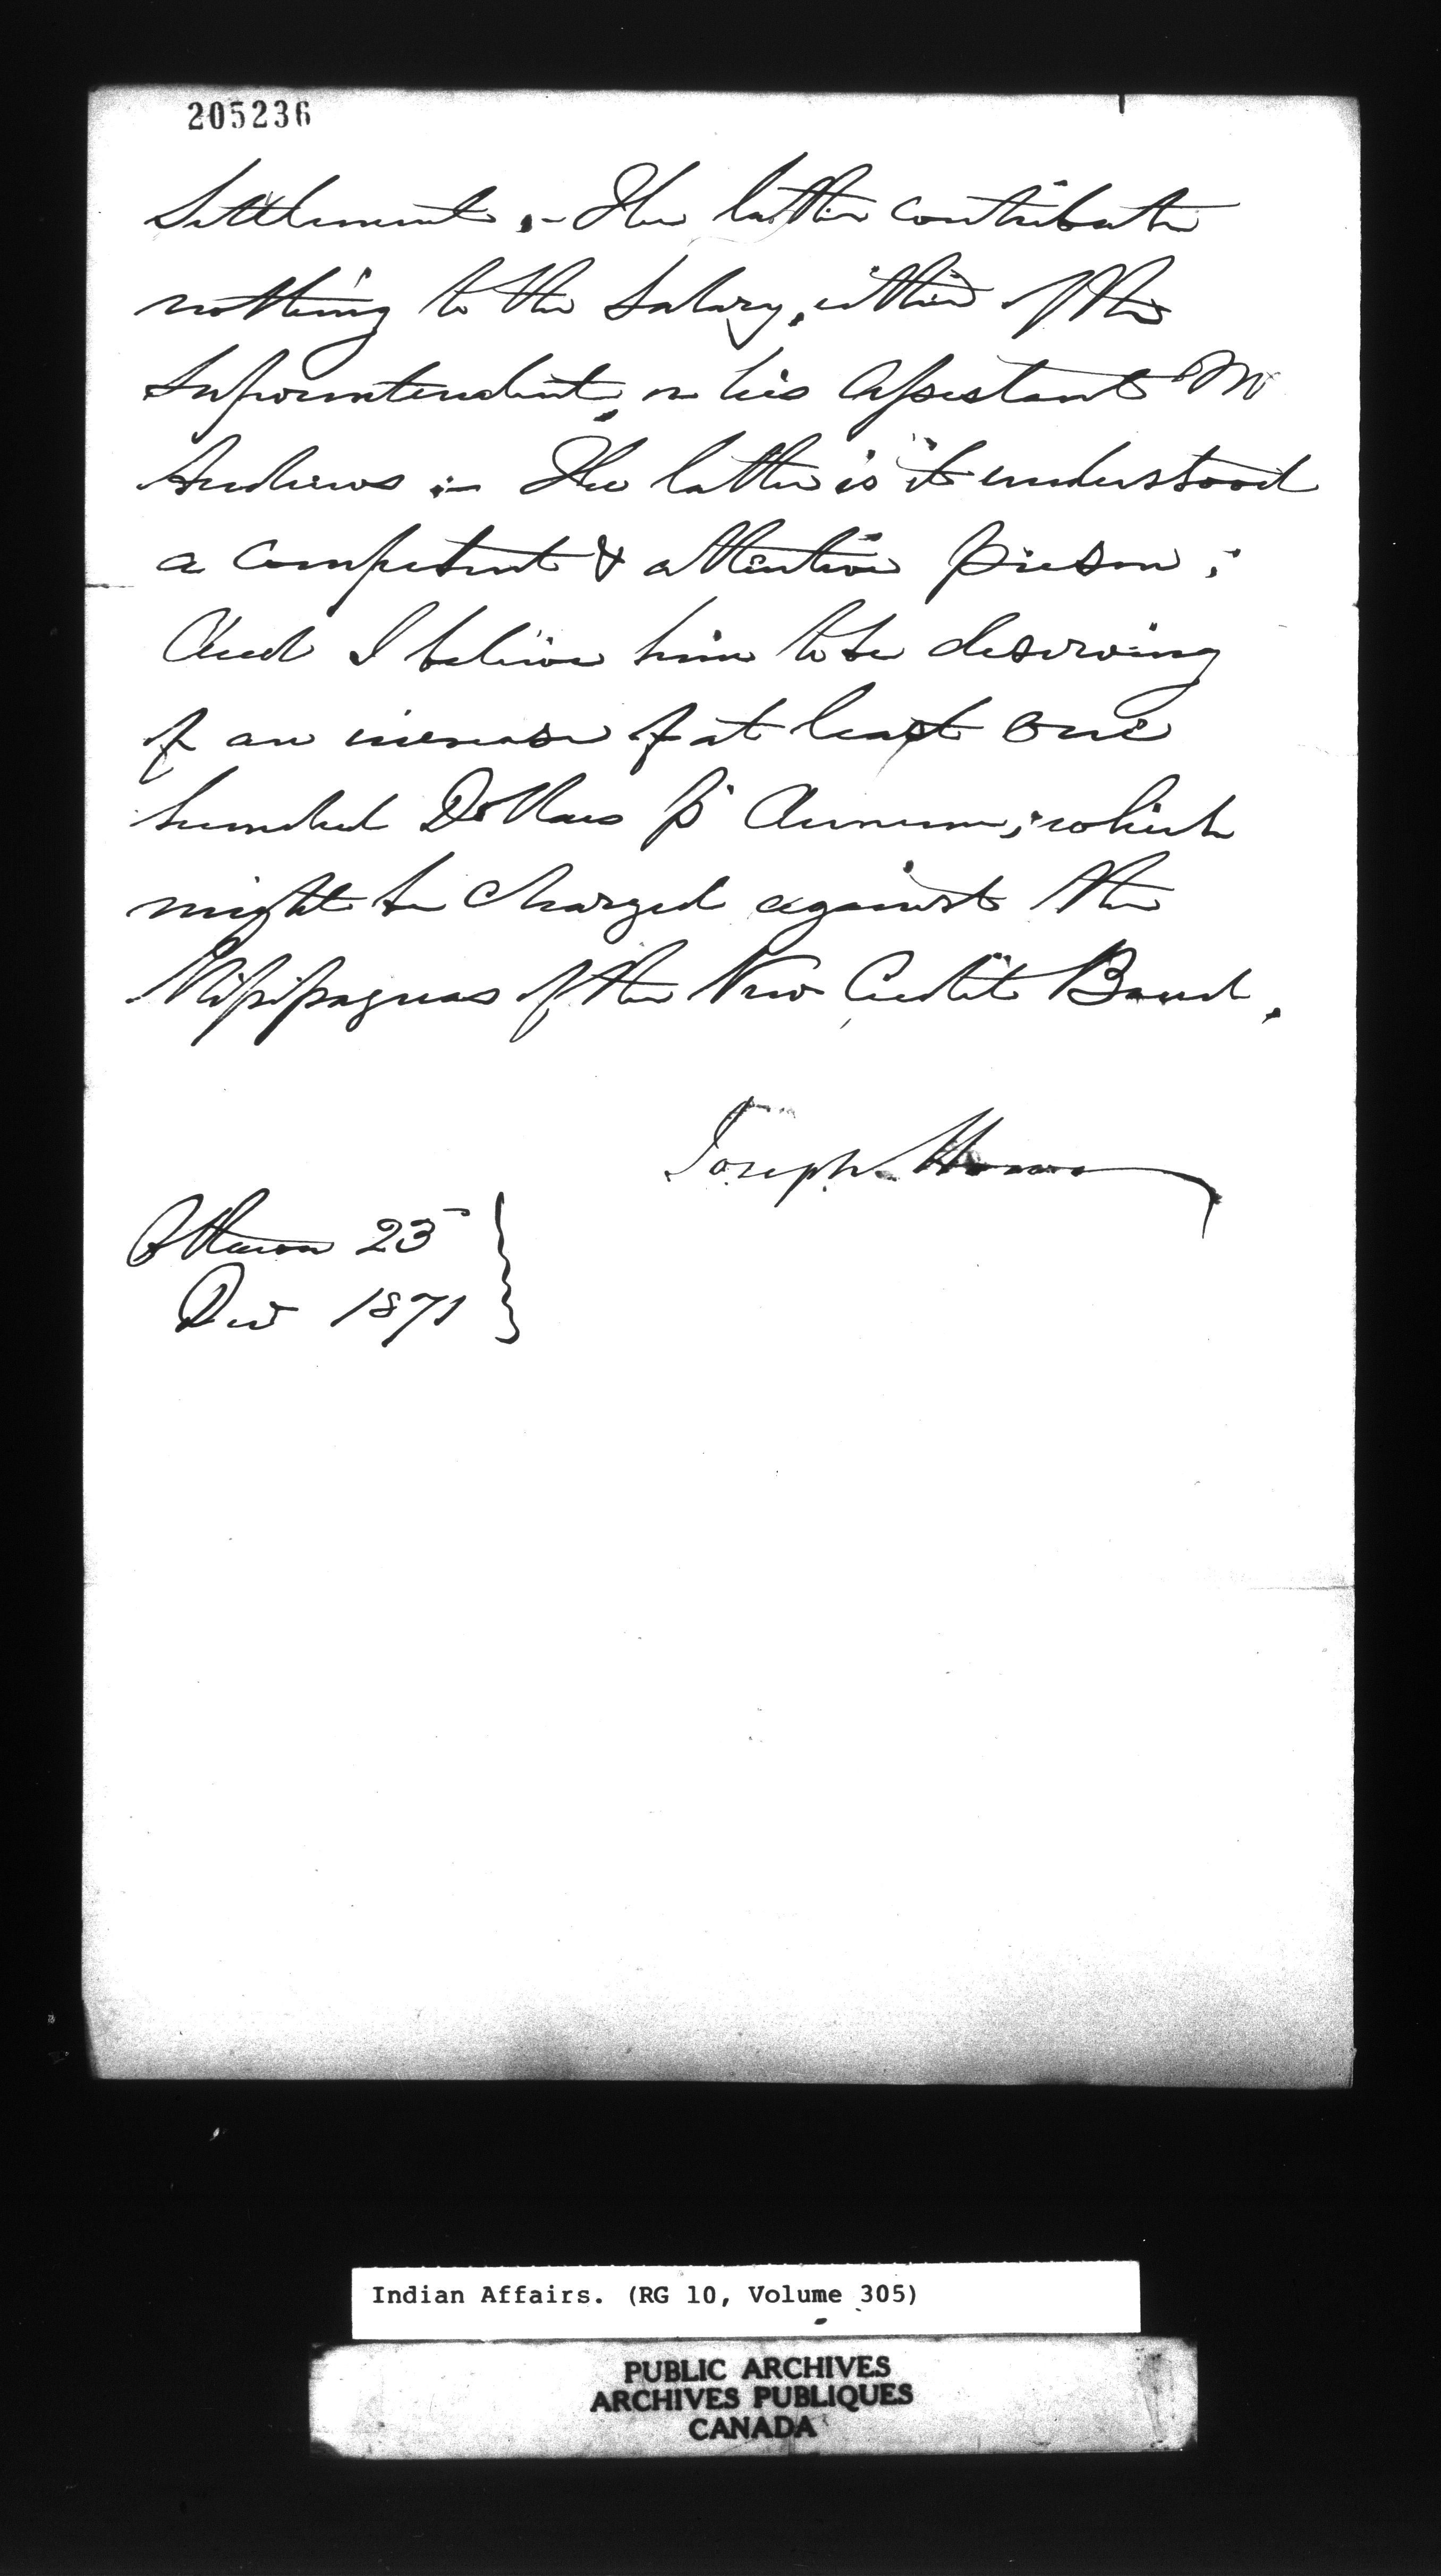 205236
Settlement. – The latter contribute
nothing to the Salary, either of the
Superintendent, or his Assistant Mr
Andrews :– The latter is it understood
a competent & attentive person ;
And I believe him to be deserving
of an increase of at least One
hundred Dollars pr Annum, which
might be charged against the
Missisaguas of the New Credit Band.
Joseph Howe
Ottawa 23
Dec 1871
Indian Affairs. (RG 10, Volume 305)
PUBLIC ARCHIVES
ARCHIVES PUBLIQUES
CANADA